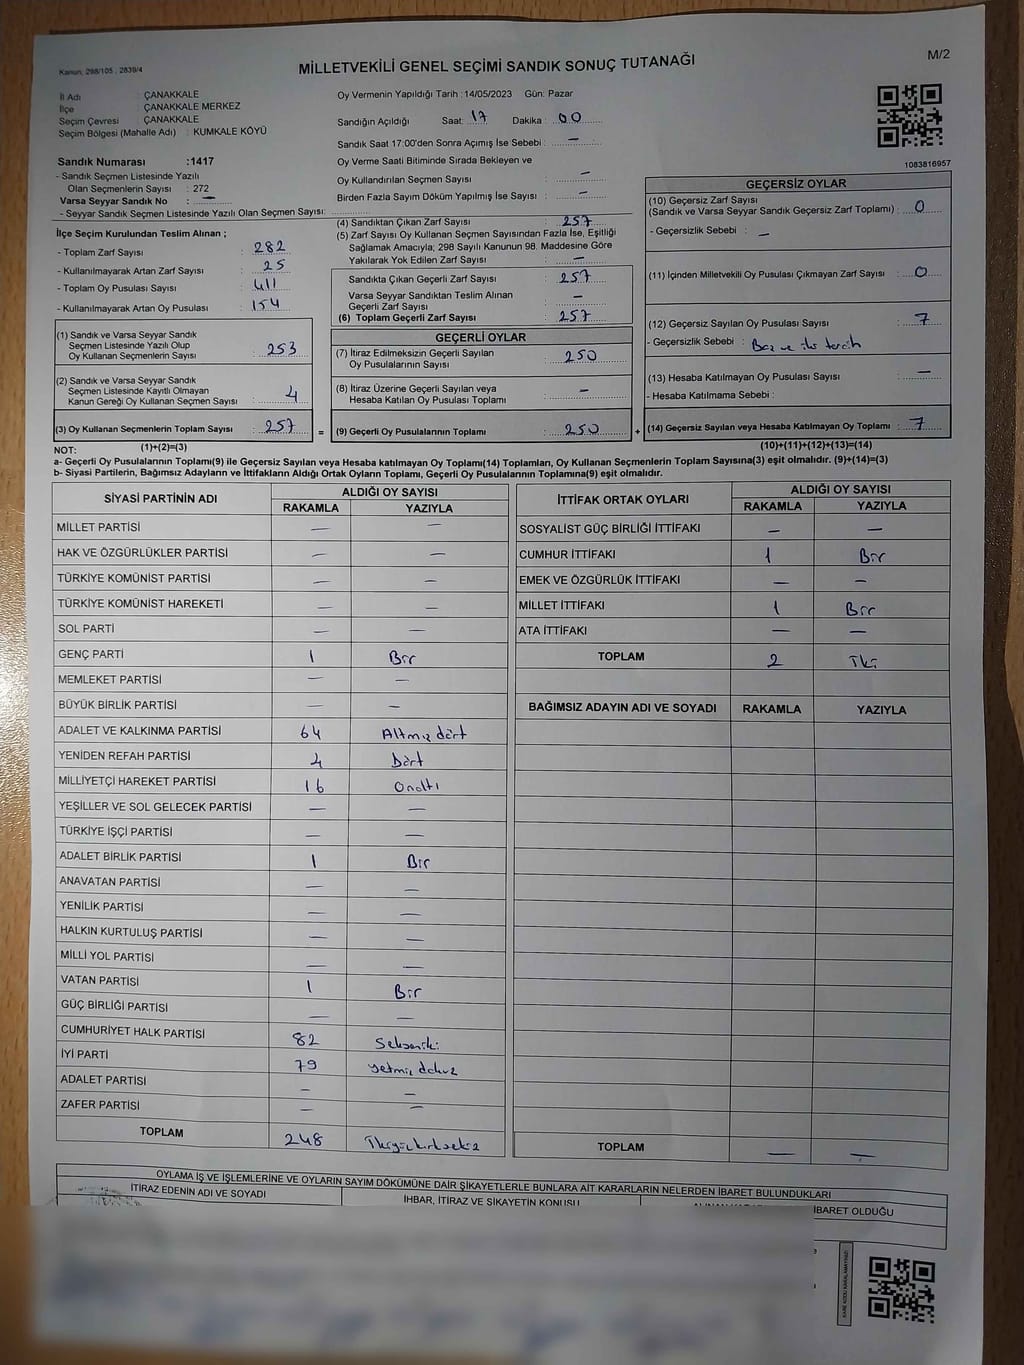 Kanun: 298/105 ; 2839/4
MİLLETVEKİLİ GENEL SEÇİMİ SANDIK SONUÇ TUTANAĞI
M/2
İl Adı : ÇANAKKALE
İlçe : ÇANAKKALE MERKEZ
Seçim Çevresi : ÇANAKKALE
Seçim Bölgesi (Mahalle Adı) : KUMKALE KÖYÜ
Sandık Numarası :1417
- Sandık Seçmen Listesinde Yazılı
Olan Seçmenlerin Sayısı : 272
Varsa Seyyar Sandık No : —
- Seyyar Sandık Seçmen Listesinde Yazılı Olan Seçmen Sayısı:
İlçe Seçim Kurulundan Teslim Alınan ;
- Toplam Zarf Sayısı : 282
- Kullanılmayarak Artan Zarf Sayısı : 25
- Toplam Oy Pusulası Sayısı : 411
- Kullanılmayarak Artan Oy Pusulası : 154
(1) Sandık ve Varsa Seyyar Sandık
Seçmen Listesinde Yazılı Olup
Oy Kullanan Seçmenlerin Sayısı : 253
(2) Sandık ve Varsa Seyyar Sandık
Seçmen Listesinde Kayıtlı Olmayan
Kanun Gereği Oy Kullanan Seçmen Sayısı : 4
(3) Oy Kullanan Seçmenlerin Toplam Sayısı : 257
Oy Vermenin Yapıldığı Tarih :14/05/2023 Gün: Pazar
Sandığın Açıldığı Saat: 17 Dakika : 00
Sandık Saat 17:00'den Sonra Açımış İse Sebebi : —
Oy Verme Saati Bitiminde Sırada Bekleyen ve
Oy Kullandırılan Seçmen Sayısı : —
Birden Fazla Sayım Döküm Yapılmış İse Sayısı : —
(4) Sandıktan Çıkan Zarf Sayısı : 257
(5) Zarf Sayısı Oy Kullanan Seçmen Sayısından Fazla İse, Eşitliği
Sağlamak Amacıyla; 298 Sayılı Kanunun 98. Maddesine Göre
Yakılarak Yok Edilen Zarf Sayısı : —
Sandıkta Çıkan Geçerli Zarf Sayısı : 257
Varsa Seyyar Sandıktan Teslim Alınan
Geçerli Zarf Sayısı : —
(6) Toplam Geçerli Zarf Sayısı : 257
GEÇERLİ OYLAR
(7) İtiraz Edilmeksizin Geçerli Sayılan
Oy Pusulalarının Sayısı : 250
(8) İtiraz Üzerine Geçerli Sayılan veya
Hesaba Katılan Oy Pusulası Toplamı : —
= (9) Geçerli Oy Pusulalarının Toplamı : 250 +
1083816957
GEÇERSİZ OYLAR
(10) Geçersiz Zarf Sayısı
(Sandık ve Varsa Seyyar Sandık Geçersiz Zarf Toplamı) : 0
- Geçersizlik Sebebi : —
(11) İçinden Milletvekili Oy Pusulası Çıkmayan Zarf Sayısı : 0
(12) Geçersiz Sayılan Oy Pusulası Sayısı : 7
- Geçersizlik Sebebi : ve
(13) Hesaba Katılmayan Oy Pusulası Sayısı : —
- Hesaba Katılmama Sebebi :
(14) Geçersiz Sayılan veya Hesaba Katılmayan Oy Toplamı : 7
NOT: (1)+(2)=(3) (10)+(11)+(12)+(13)=(14)
a- Geçerli Oy Pusulalarının Toplamı(9) ile Geçersiz Sayılan veya Hesaba katılmayan Oy Toplamı(14) Toplamları, Oy Kullanan Seçmenlerin Toplam Sayısına(3) eşit olmalıdır. (9)+(14)=(3)
b- Siyasi Partilerin, Bağımsız Adayların ve İttifakların Aldığı Ortak Oyların Toplamı, Geçerli Oy Pusulalarının Toplamına(9) eşit olmalıdır.
SİYASİ PARTİNİN ADI ALDIĞI OY SAYISI
RAKAMLA YAZIYLA
MİLLET PARTİSİ — —
HAK VE ÖZGÜRLÜKLER PARTİSİ — —
TÜRKİYE KOMÜNİST PARTİSİ — —
TÜRKİYE KOMÜNİST HAREKETİ — —
SOL PARTİ — —
GENÇ PARTİ 1 Bir
MEMLEKET PARTİSİ — —
BÜYÜK BİRLİK PARTİSİ — —
ADALET VE KALKINMA PARTİSİ 64 Altmış dört
YENİDEN REFAH PARTİSİ 4 Dört
MİLLİYETÇİ HAREKET PARTİSİ 16 Onaltı
YEŞİLLER VE SOL GELECEK PARTİSİ — —
TÜRKİYE İŞÇİ PARTİSİ — —
ADALET BİRLİK PARTİSİ 1 Bir
ANAVATAN PARTİSİ — —
YENİLİK PARTİSİ — —
HALKIN KURTULUŞ PARTİSİ — —
MİLLİ YOL PARTİSİ — —
VATAN PARTİSİ 1 Bir
GÜÇ BİRLİĞİ PARTİSİ — —
CUMHURİYET HALK PARTİSİ 82 Sekseniki
İYİ PARTİ 79 yetmiş dokuz
ADALET PARTİSİ — —
ZAFER PARTİSİ — —
TOPLAM 248 İkiyüzkırksekiz
İTTİFAK ORTAK OYLARI ALDIĞI OY SAYISI
RAKAMLA YAZIYLA
SOSYALİST GÜÇ BİRLİĞİ İTTİFAKI — —
CUMHUR İTTİFAKI 1 Bir
EMEK VE ÖZGÜRLÜK İTTİFAKI — —
MİLLET İTTİFAKI 1 Bir
ATA İTTİFAKI — —
TOPLAM 2 İki
BAĞIMSIZ ADAYIN ADI VE SOYADI RAKAMLA YAZIYLA
TOPLAM — —
OYLAMA İŞ VE İŞLEMLERİNE VE OYLARIN SAYIM DÖKÜMÜNE DAİR ŞİKAYETLERLE BUNLARA AİT KARARLARIN NELERDEN İBARET BULUNDUKLARI
İTİRAZ EDENİN ADI VE SOYADI İHBAR, İTİRAZ VE ŞİKAYETİN KONUSU İBARET OLDUĞU
KARE KODU KARALAMAYINIZ!